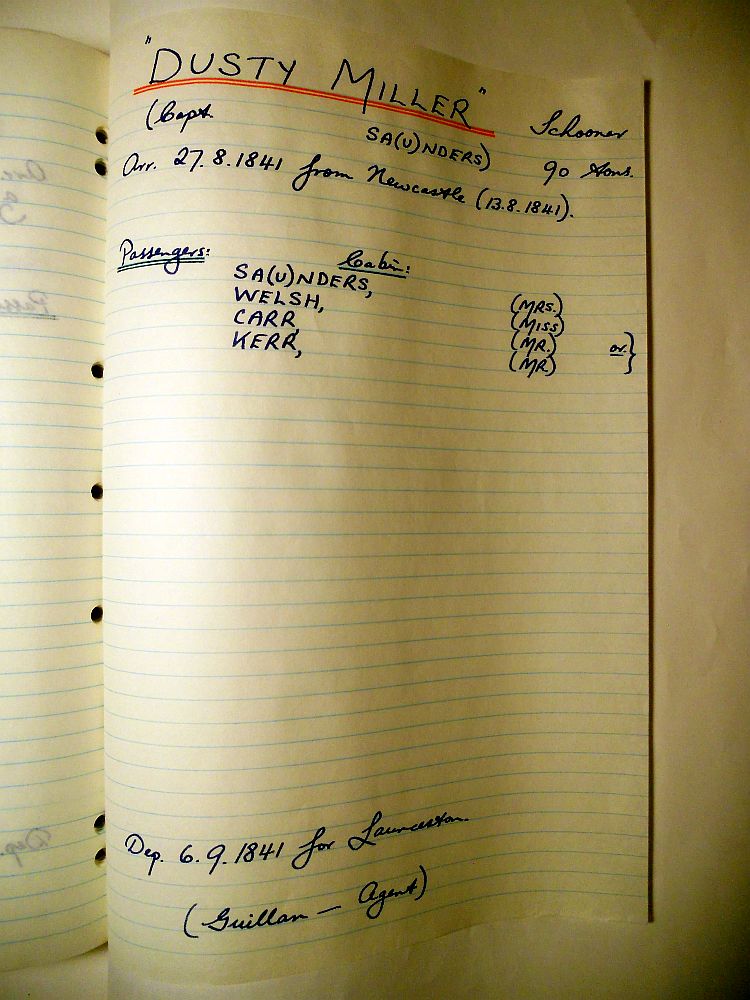 "DUSTY MILLER"
(Capt. SA(U)NDERS) Schooner
Arr. 27.8.1841 from Newcastle (13.8.1841). 90 tons.
Passengers: Cabin:
SA(U)NDERS, (MRS.)
WELSH, (MISS)
CARR, (MR.) or }
KERR, (MR)
Dep. 6.9.1841 for Launceston.
(Guillan — Agent)